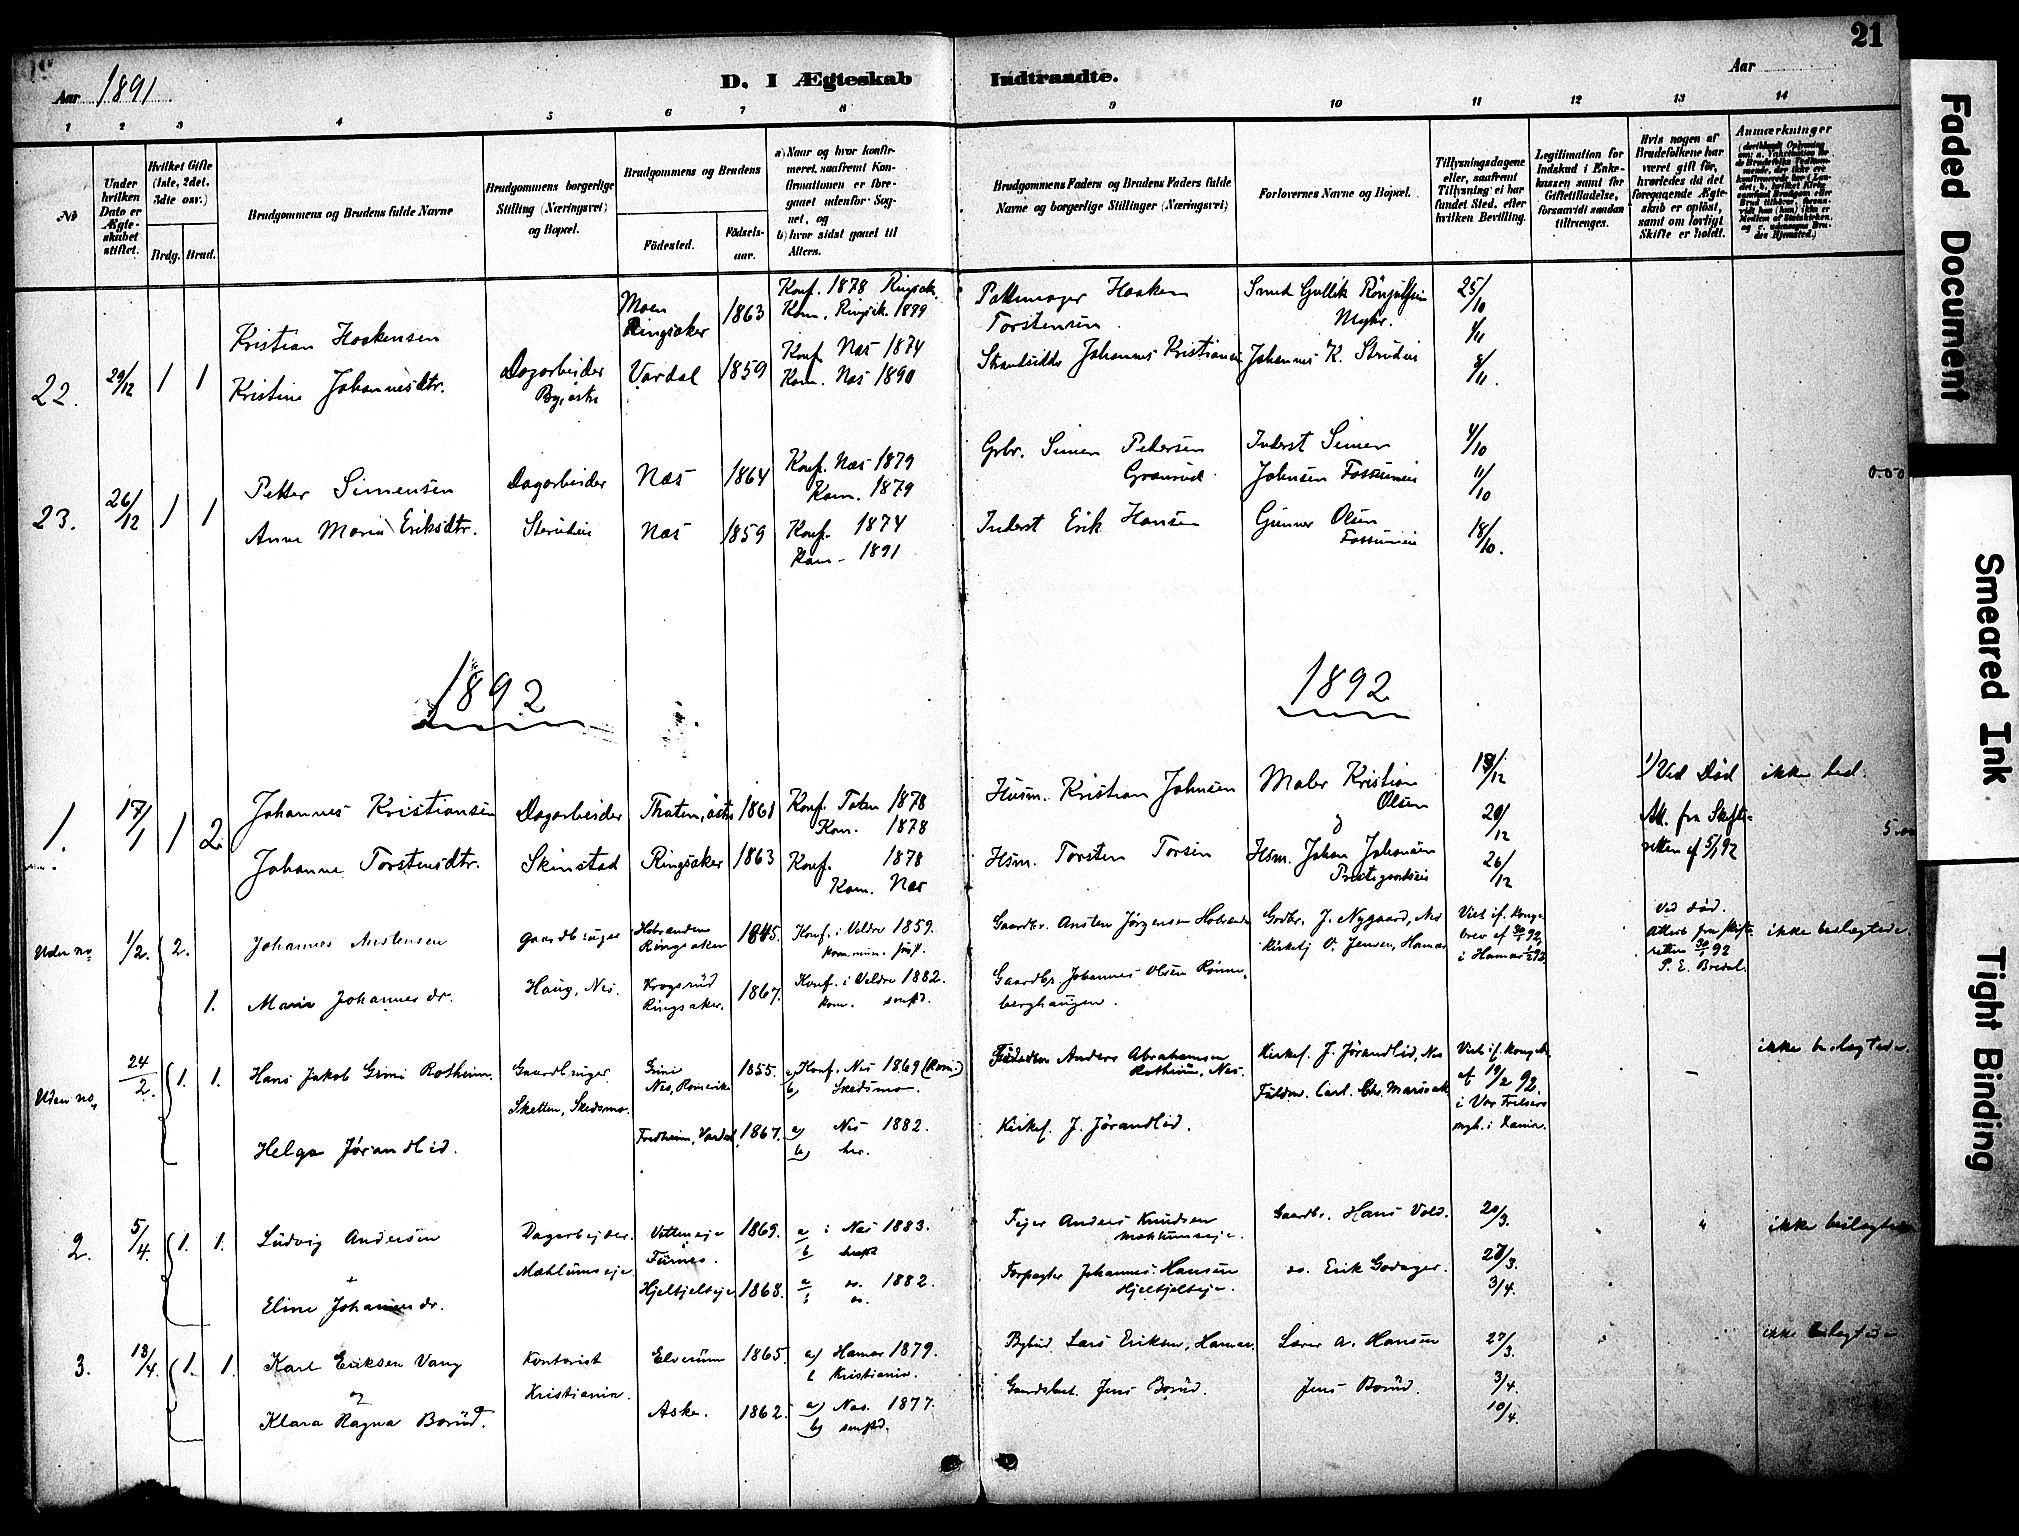 21
Aar 1891.
D. I Ægteskab Indtraadte.
Aar
1 2 3 4 5 6 7 8 9 10 11 12 13 14
No
Under hvilken Dato er Ægteskabet stiftet.
Hvilket Gifte (1ste, 2det, 3dte osv.)
Brdg. Brud.
Brudgommens og Brudens fulde Navne
Brudgommens borgerlige Stilling (Næringsvei) og Bopæl.
Brudgommens og Brudens
Födested.
Födselsaar.
a) Naar og hvor konfirmeret, saafremt Konfirmationen er foregaaet udenfor Sognet, og
b) hvor sidst gaaet til Alters.
Brudgommens Faders og Brudens Faders fulde Navne og borgerlige Stillinger (Næringsvei)
Forlovernes Navne og Bopæl.
Tillysningsdagene eller, saafremt Tillysning ei har fundet Sted, efter hvilken Bevilling.
Legitimation for Indskud i Enkekassen samt for Giftetilladelse, forsaavidt saadan tiltrænges.
Hvis nogen af Brudefolkene har været gift för, hvorledes da det foregaaende Ægteskab er oplöst, samt om lovligt Skifte er holdt.
Anmærkninger
22. 29/12 1 1
Kristian Haakensen
Kristine Johannesdtr.
Dagarbeider
Moen Ringsaker 1863
Vardal 1859
Konf. 1878 Ringsak.
Kom. Ringsak. 1879
Konf. Næs 1874
Kom. Næs 1890
Haaken Torstensen
Johannes Kristiansen
Smed Gullik
Myhr.
Johannes K.
25/10
1/11
8/11.
23. 26/12 1 1
Petter Simensen
Anne Marie Eriksdtr.
Dagarbeider
Næs 1864
Næs 1859
Konf. Næs 1879
Kom. 1879
Konf. 1874
Kom. 1891
Gbr. Simen Pedersen
Granrud
Inderst Erik Hansen
Inderst Simen
Johnsen Fossumeie
Gunner Olsen
Fossumeie
4/10
11/10
18/10.
1892
1892
1. 17/1 1 2
Johannes Kristiansen
Johanne Torstensdtr.
Dagarbeider
Skinstad
1861
Ringsaker 1863
Konf. Toten 1878
Kom. 1878
Konf. 1878
Kom. Næs
Husm. Kristian Johnsen
Hsm. Torsten
Maler Kristian
Olsen
Hsm. Johan Johansen
20/12
26/12
1) Ved Död
Att. fra Skifteretten af 5/1 92
ikke besl.
5.00
Uden no 1/2. 2. 1.
Johannes Anstensen
Maria Johannesdr.
Gaardbruger
Haug, Nes.
Ringsaker 1845.
Krogsrud Ringsaker. 1867.
Konf. i Veldre 1859.
kommun. sust.
Konf. i Veldre 1882.
kom. smstd.
Gaardbr. Ansten Jørgensen
Gaardbr. Johannes Olsen Rønneberghaugen.
Gbr. J. Nygaard, Nes
Kirketj O. Jensen, Hamar
Viet if. kongebrev af 30/1 92
i Hamar
Ved død.
Attest fra skifteretten 30/1 92
P. E. Bredal.
ikke beslægtede
Uden no 24/2. 1. 1.
Hans Jakob Grini Rotheim.
Helga Jørandlid.
Gaardbruger
Sketten, Skedsmo.
Grini Nes, Romerike 1855.
Fredheim, Vardal. 1867.
a) Konf. Nes 1869 (Rom.)
b) Skedsmo.
a) Nes 1882.
b) her.
Anders Abrahamsen
Rotheim, Nes.
Kirkes. J. Jørandlid.
Kirkes. J. Jørandlid, Nes
Fuldm. Carl Chr.
Viet if. kongebr.
af 19/2 92.
i Vor Frelsers
—
ikke beslægtede.
2. 5/4. 1. 1.
Ludvig Andersen
+
Eline Johannesdr.
Dagarbejder.
Mæhlumseje
Furnes. 1869.
Hjelkjelseje 1868.
a i Nes 1883.
b smstd
a do. 1882.
b do.
Fejer Anders Knudsen
Mæhlumseje.
Forpagter Johannes Hansen
Hjelkjelseje.
Gaardbr. Hans Vold.
do. Erik Godager.
20/3.
27/3.
3/4.
"
ikke beslægtede
3. 13/4. 1. 1.
Karl Eriksen Vang
og
Klara Ragna Borud.
Kontorist
Kristiania.
Elverum 1865.
Aske. 1862.
a) Hamar 1879.
b Kristiania.
a) Nes. 1877.
b) smstd.
Bybud Lars Eriksen, Hamar
Jens Borud.
Lærer A. Hansen
Jens Borud.
27/3.
3/4.
10/4.
ikke beslægtede
Faded Document
Smeared Ink
Tight Binding